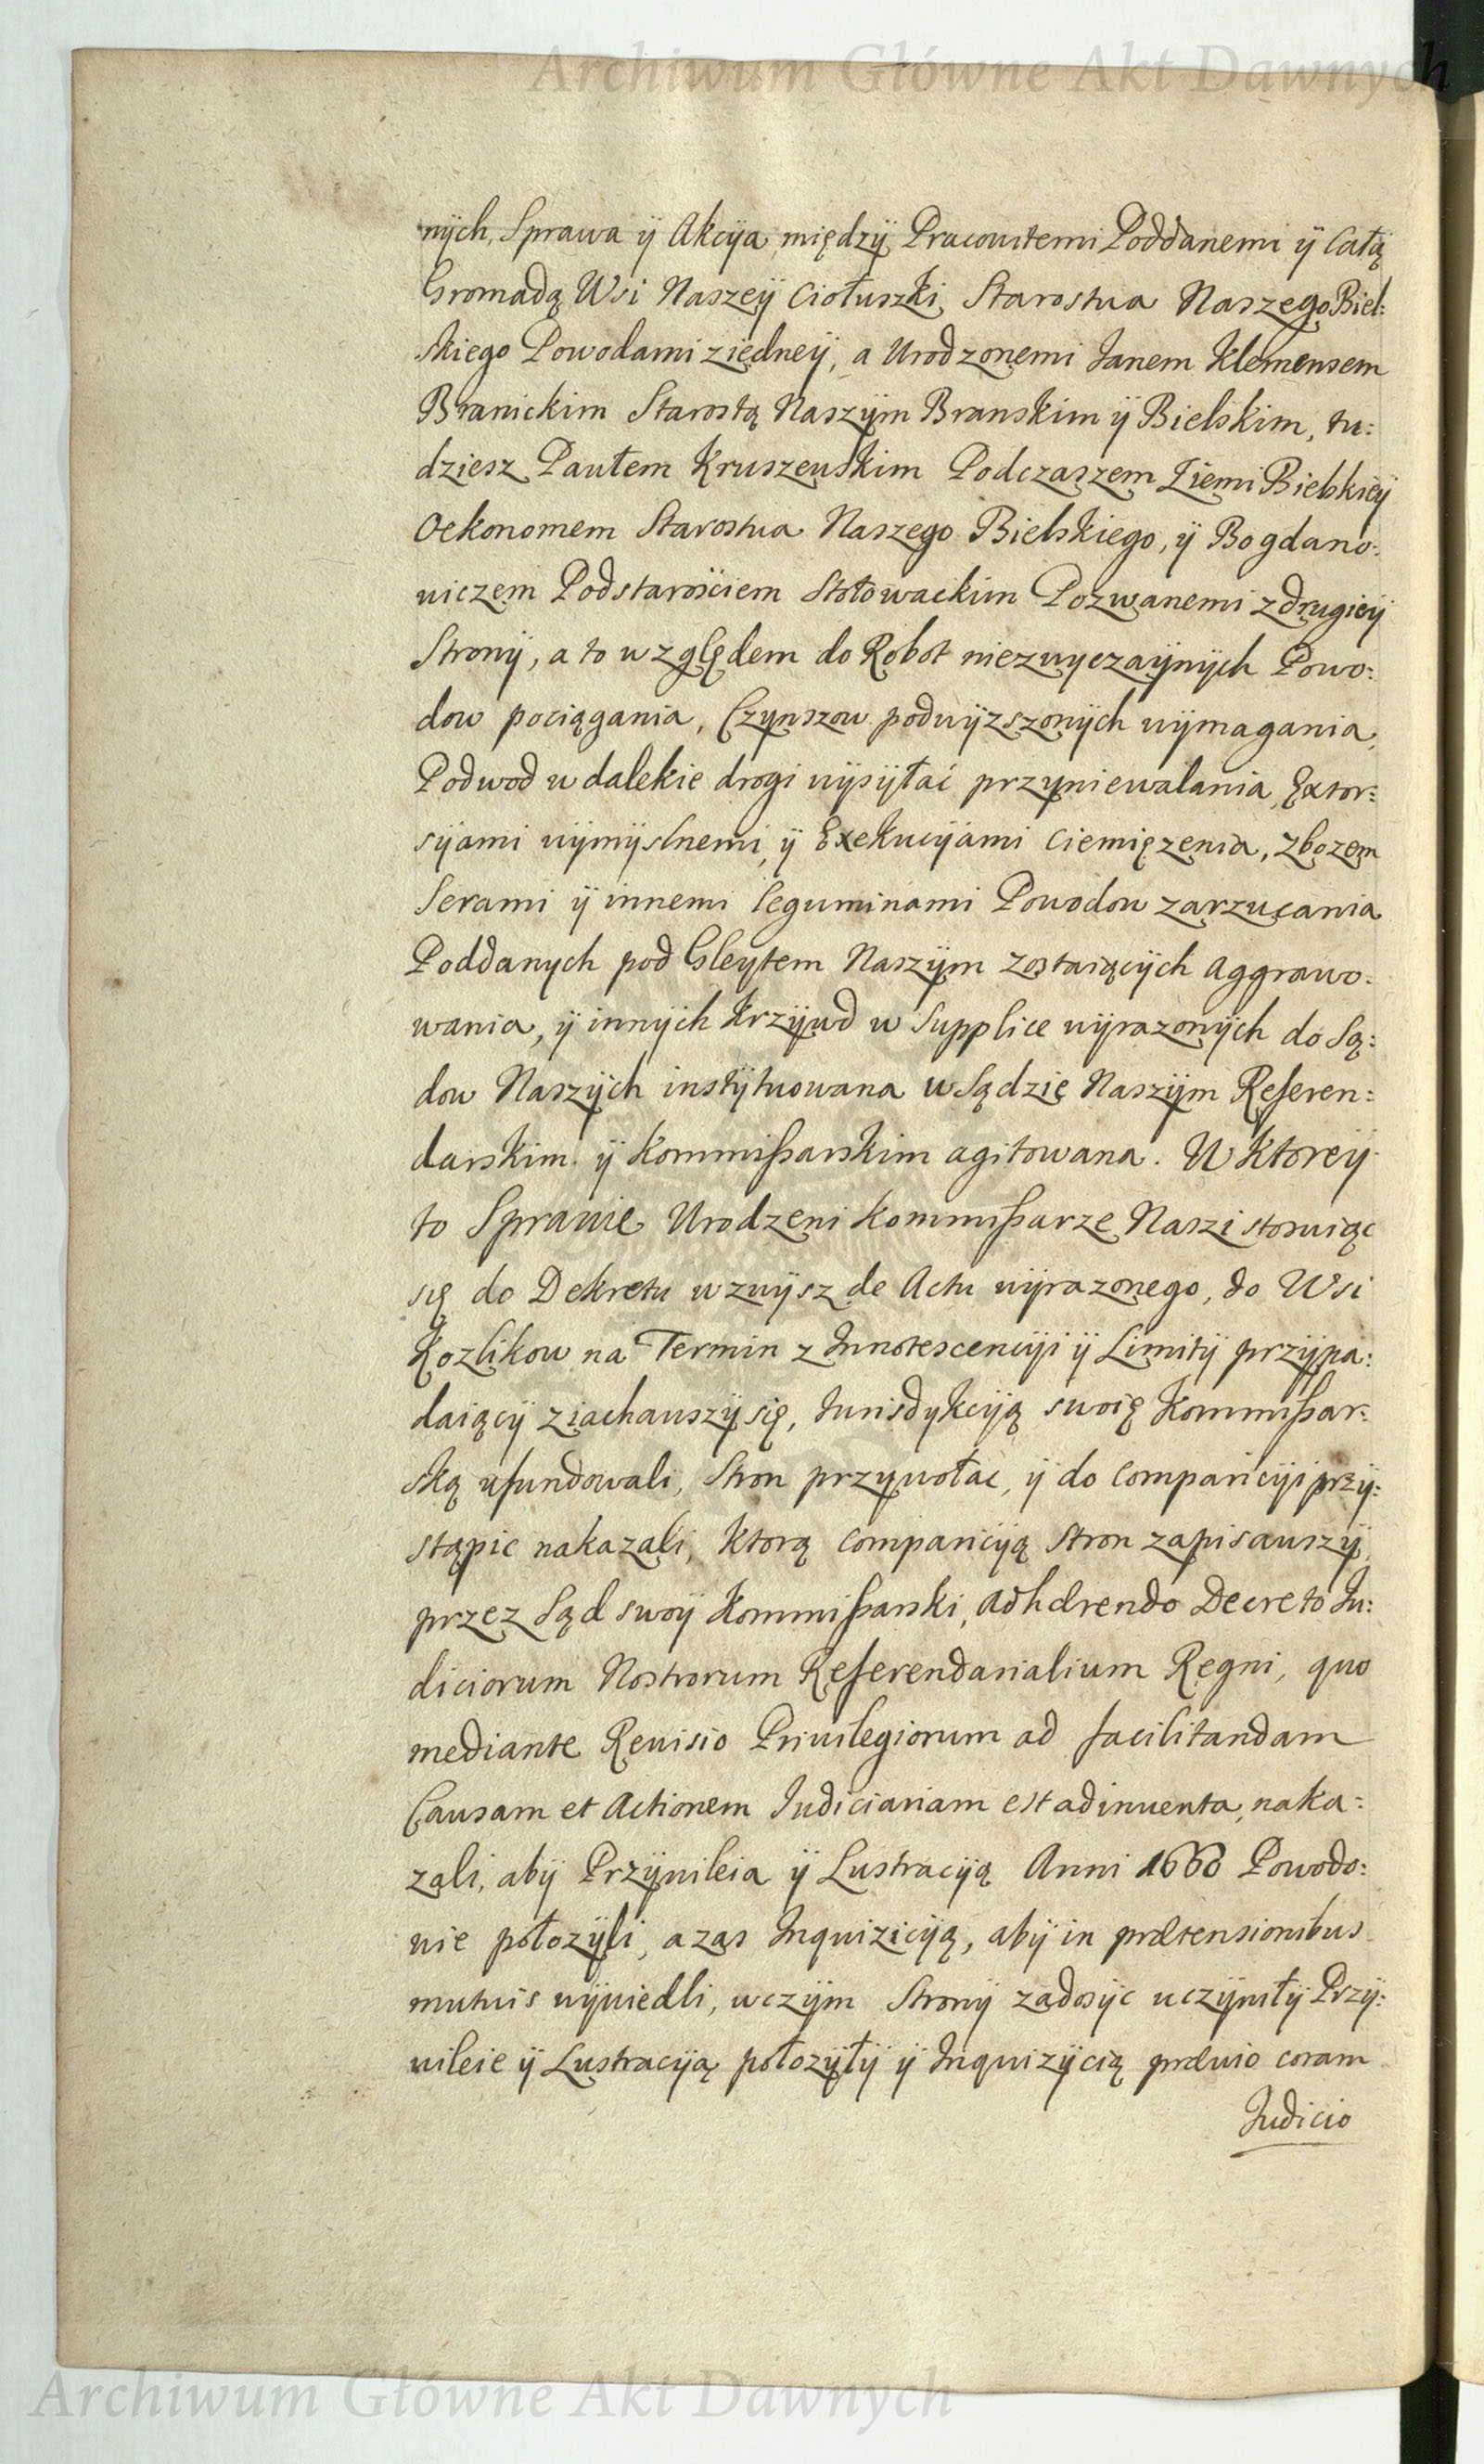 Archiwum Główne Akt Dawnych
nÿch, Sprawa ÿ Akcÿa, międzÿ Pracowitemi Poddanemi ÿ Całą
Gromadą Wsi Naszeÿ Ciołuszki, Starostwa Naszego Biel:
skiego Powodami ziedneÿ, a Urodzonemi Janem Klemensem
Branickim Starostą Naszÿm Branskim ÿ Bielskim, tu:
dziesz Pawłem Kruszewskim Podczaszem Ziemi Bielskieÿ
Oekonomem Starostwa Naszego Bielskiego, ÿ Bogdano:
wiczem Podstarościem Stołowackim Pozwanemi z drugieÿ
Stronÿ, a to względem do Robot niezwyczaÿnÿch Powo:
dow pociągania, Czynszow podwÿzszonÿch wÿmagania,
Podwod w dalekie drogi wÿsÿłać przyniewalania, Extor:
sÿami wÿmÿslnemi, ÿ Exekucÿami ciemięzenia, zbozem
Serami ÿ innemi leguminami Powodow zarzucania
Poddanych pod Gleytem Naszÿm zostaiącÿch aggrawo:
wania, ÿ innÿch Krzÿwd w Supplice wÿrazonÿch do Są:
dow Naszÿch instÿtuowana w Sądzie Naszÿm Referen:
darskim ÿ Kommißarskim agitowana. W Ktoreÿ
to Sprawie Urodzeni Kommißarze Naszi stosuiąc
się do Dekretu wzwÿsz de Actu wÿrazonego, do Wsi
Kozlikow na Termin z Innotescencÿi ÿ Limitÿ przÿpa:
daiącÿ ziachawszÿ się, Jurisdykcÿą swoię Kommißar:
ską ufundowali, Stron przywołac, ÿ do comparicÿi przÿ:
stąpic nakazali, Ktorą comparicÿą Stron zapisawszÿ,
przez Sąd swoÿ Kommißarski, adhærendo Decreto Ju:
diciorum Nostrorum Referendarialium Regni, quo
mediante Revisio Privilegiorum ad facilitandam
Causam et Actionem Judiciariam est adinventa, naka:
zali, abÿ Przÿwileia ÿ Lustracÿą Anni 1660 Powodo:
wie połozÿli, a zas Inquizicÿą, abÿ in prætensionibus
mutuis wÿwiedli, w czÿm Stronÿ zadosÿc uczÿniłÿ Przÿ:
wileie ÿ Lustracÿą połozÿłÿ ÿ Inquizÿcią prævio coram
Judicio
Archiwum Główne Akt Dawnych